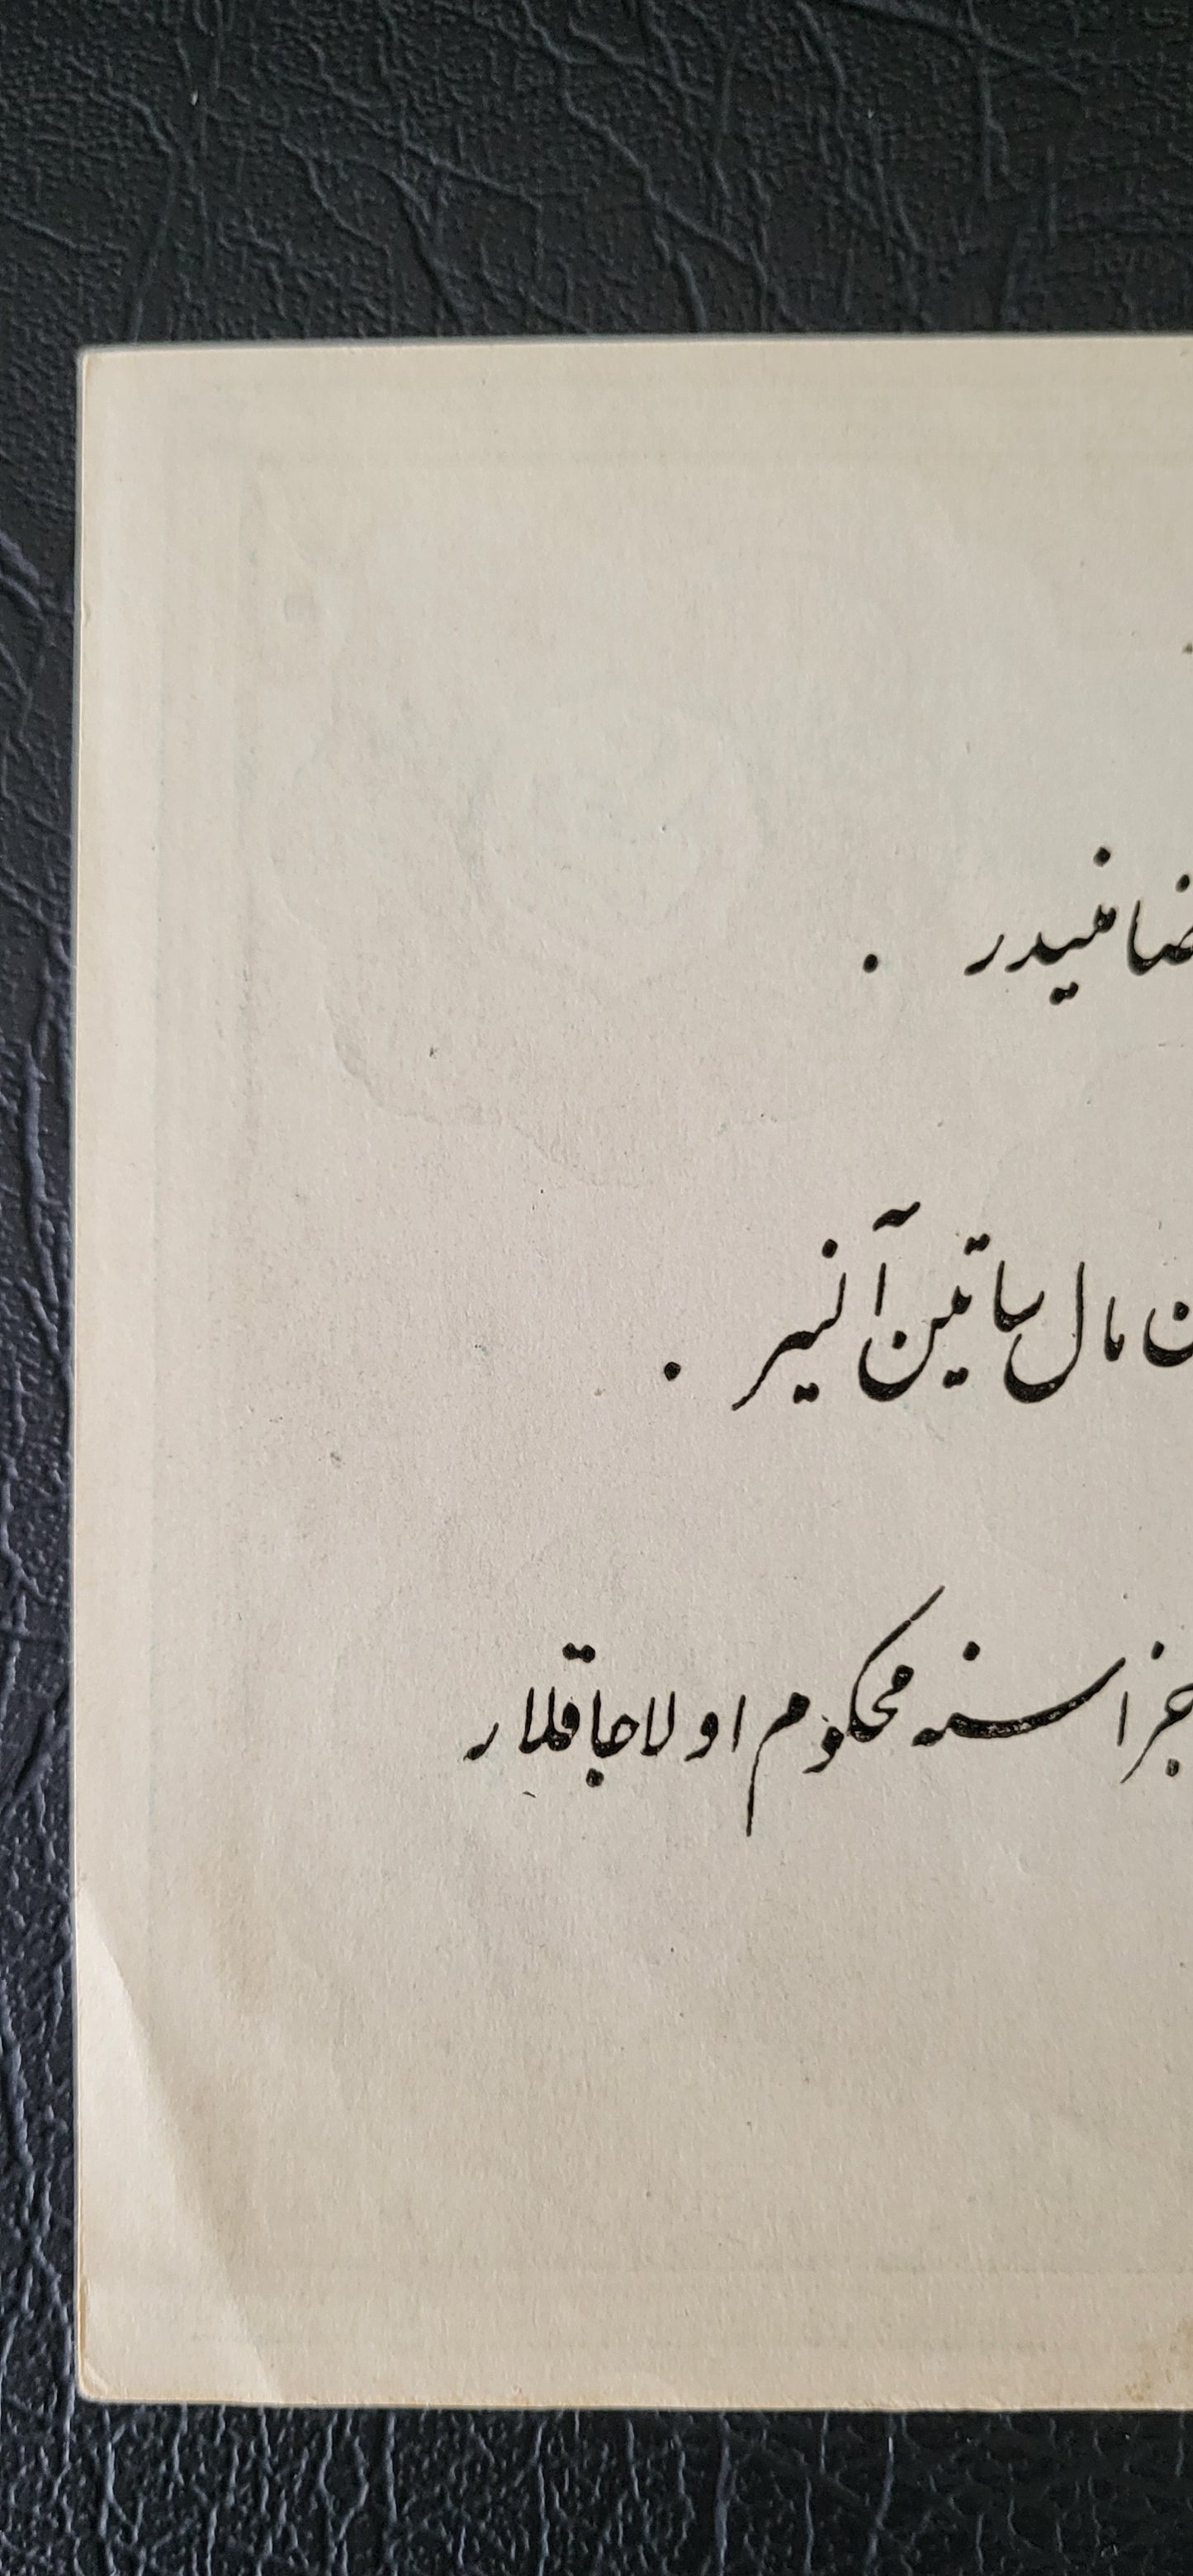 ضامنیدر .
مال ساتین آلنیر .
جزاسنه محکوم اولاجاقلار